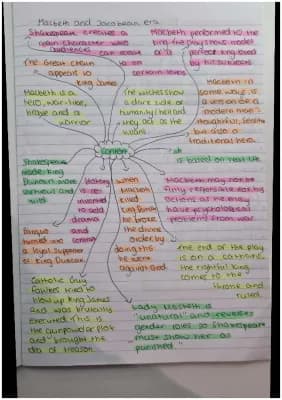 Macbeth and Jacobean era
Shakespeare creates a
character who
audiences can
Macbeth performed to the
king. The play shows model
of a perfect king loved
by his subjects
The Great Chain
appeals to
King James
on
certain levels
Macbeth is a
hero, war-hero,
brave and a
warrior
The witches show
a dark side of
humanity (hell and
they act as the
Macbeth in
some ways is
a version of a
modern hero -
thoughtful, sensitive
but also a
traditional hero.
Context
It
is based on real life
Shakespeare
made king
Duncan more
virtuous and
mild
History
is re-
invented
to add
drama
and
When
Macbeth
killed
king Duncan
he broke
the divine
order by
doing this
he went
against God
Macbeth may not be
fully responsible for his
actions as he may
have psychological
problems from war.
Banquo
turned into
a loyal supporter
of King Duncan
The end of the play
is on a catharsis,
the rightful king
comes to the
throne and
ruled.
Catholic Guy
Fawkes tried to
blow up King James
and was brutally
executed. This is
the gunpowder plot
and brought the
idea of treason.
Lady Macbeth is
"unnatural" and reverses
gender roles so Shakespeare
must show her as
punished.